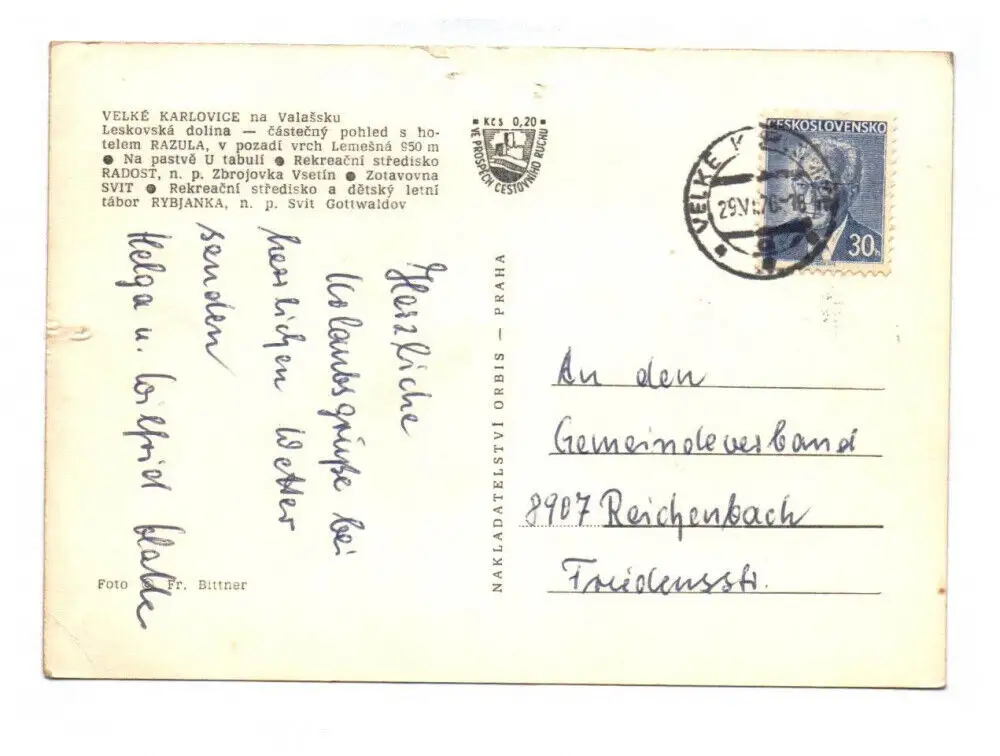 VELKÉ KARLOVICE na Valašsku
Leskovská dolina — částečný pohled s ho-
telem RAZULA, v pozadí vrch Lemešná 950 m
● Na pastvě U tabulí ● Rekreační středisko
RADOST, n. p. Zbrojovka Vsetín ● Zotavovna
SVIT ● Rekreační středisko a dětský letní
tábor RYBJANKA, n. p. Svit Gottwaldov
Herzliche
Urlaubsgrüße bei
herrlichen Wetter
senden
Helga u. Wilfrid
Foto Fr. Bittner
Kčs 0,20
VE PROSPĚCH CESTOVNÍHO RUCHU
NAKLADATELSTVÍ ORBIS — PRAHA
VELKÉ K
ČESKOSLOVENSKO
30h
An den
Gemeindeverband
8907 Reichenbach
Friedensstr.